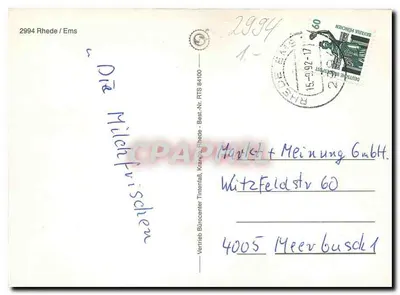 2994 Rhede / Ems
2994
1.-
60
RHEDE, EMS
15.-9.92-17
" Die Milchfrischen
Markt + Meinung GmbH.
Witzfeldstr 60
4005 Meerbusch 1
Vertrieb Bürocenter Tintenfaß, Rhede - Best.-Nr. RTS 84100